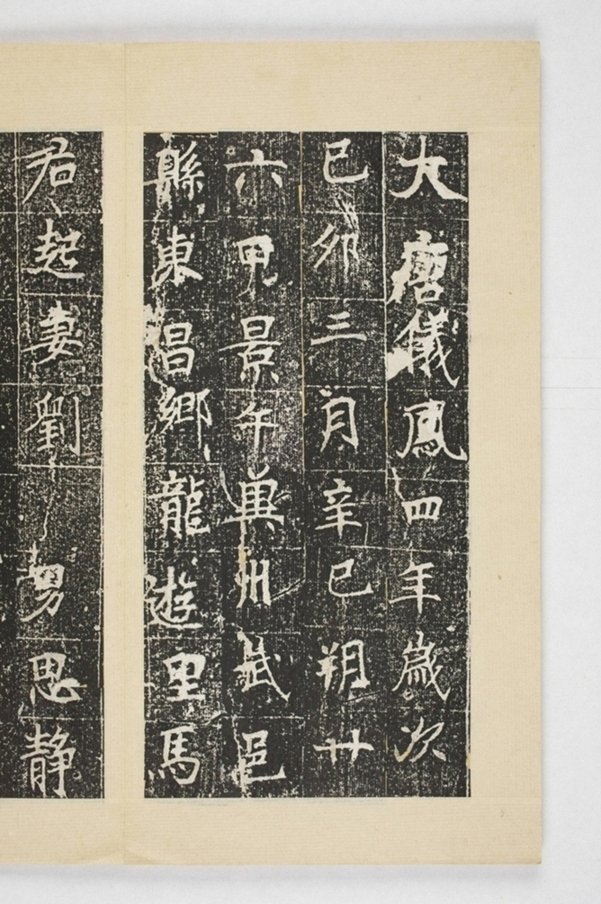 大唐儀鳳四年歲次
己卯三月辛巳朔廿
六甲景午冀州武邑
縣東昌鄉龍遊里馬
君起妻劉 男思静